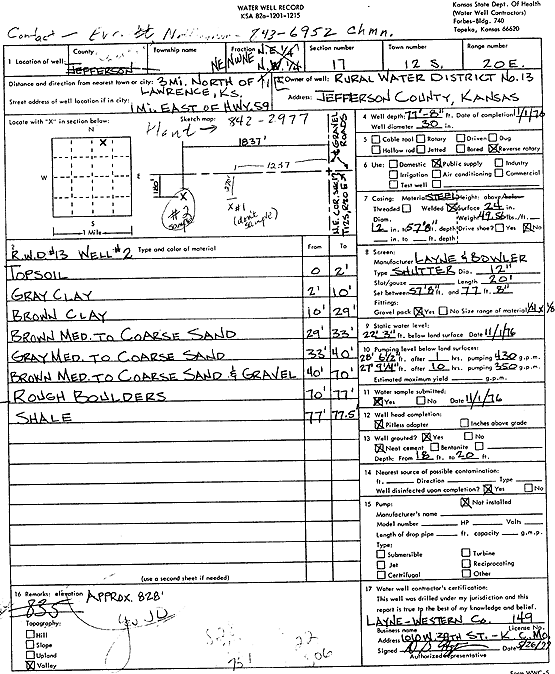 WATER WELL RECORD
KSA 82a-1201-1215
Kansas State Dept. Of Health
(Water Well Contractors)
Forbes-Bldg. 740
Topeka, Kansas 66620
Contact - 843-6952 Chmn.
1 Location of well:
County
JEFFERSON
Township name
Fraction
NE NW NE
Section number
17
Town number
12 S.
Range number
20 E.
Distance and direction from nearest town or city: 3 MI. NORTH OF
LAWRENCE, KS.
Street address of well location if in city:
1 MI. EAST OF HWY. 59
Owner of well: RURAL WATER DISTRICT NO. 13
Address: JEFFERSON COUNTY, KANSAS
Locate with "X" in section below:
Sketch map:
842-2977
N
X
W
E
S
1 Mile
1837'
1237
GRAVEL ROADS
N.E. COR. SEC. 17
T12S, R20E
#2 sample
X #1
(don't sample)
4 Well depth: 77'-8" ft. Date of completion 11/1/76
Well diameter 30 in.
5 Cable tool Rotary Driven Dug
Hollow rod Jetted Bored X Reverse rotary
6 Use: Domestic X Public supply Industry
Irrigation Air conditioning Commercial
Test well
7 Casing: Material STEEL Height: above/below
Threaded Welded X Surface 24 in.
Diam. Weight 49.56 lbs./ft.
12 in. to 57'8" ft. depth Drive shoe? Yes X No
in. to ft. depth
2 R.W.D #13 WELL #2 Type and color of material From To
TOPSOIL 0 2'
GRAY CLAY 2' 10'
BROWN CLAY 10' 29'
BROWN MED. TO COARSE SAND 29' 33'
GRAY MED. TO COARSE SAND 33' 40'
BROWN MED. TO COARSE SAND & GRAVEL 40' 70'
ROUGH BOULDERS 70' 77'
SHALE 77' 77.5'
(use a second sheet if needed)
8 Screen:
Manufacturer LAYNE & BOWLER
Type SHUTTER Dia. 12"
Slot/gauze Length 20'
Set between 57'8" ft. and 77 ft. 8"
Fittings:
Gravel pack X Yes No Size range of material 1/4 x 1/8
9 Static water level:
22' 3" ft. below land surface Date 11/1/76
10 Pumping level below land surfaces:
28' 6 1/2" ft. after 1 hrs. pumping 430 g.p.m.
27' 9 1/4" ft. after 10 hrs. pumping 350 g.p.m.
Estimated maximum yield g.p.m.
11 Water sample submitted:
X Yes No Date 11/1/76
12 Well head completion:
X Pitless adapter Inches above grade
13 Well grouted? X Yes No
X Neat cement Bentonite
Depth: From 18 ft. to 20 ft.
14 Nearest source of possible contamination:
ft. Direction Type
Well disinfected upon completion? X Yes No
15 Pump: X Not installed
Manufacturer's name
Model number HP Volts
Length of drop pipe ft. capacity g.m.p.
Type:
Submersible Turbine
Jet Reciprocating
Certrifugal Other
16 Remarks: elevation APPROX. 828'
835
Topography:
Hill
Slope
Upland
X Valley
17 Water well contractor's certification:
This well was drilled under my jurisdiction and this
report is true to the best of my knowledge and belief.
LAYNE-WESTERN Co. 149
Business name License No.
Address 1010 W. 39TH ST. - K.C. MO.
Signed Date
Authorized representative
Form WWC-5